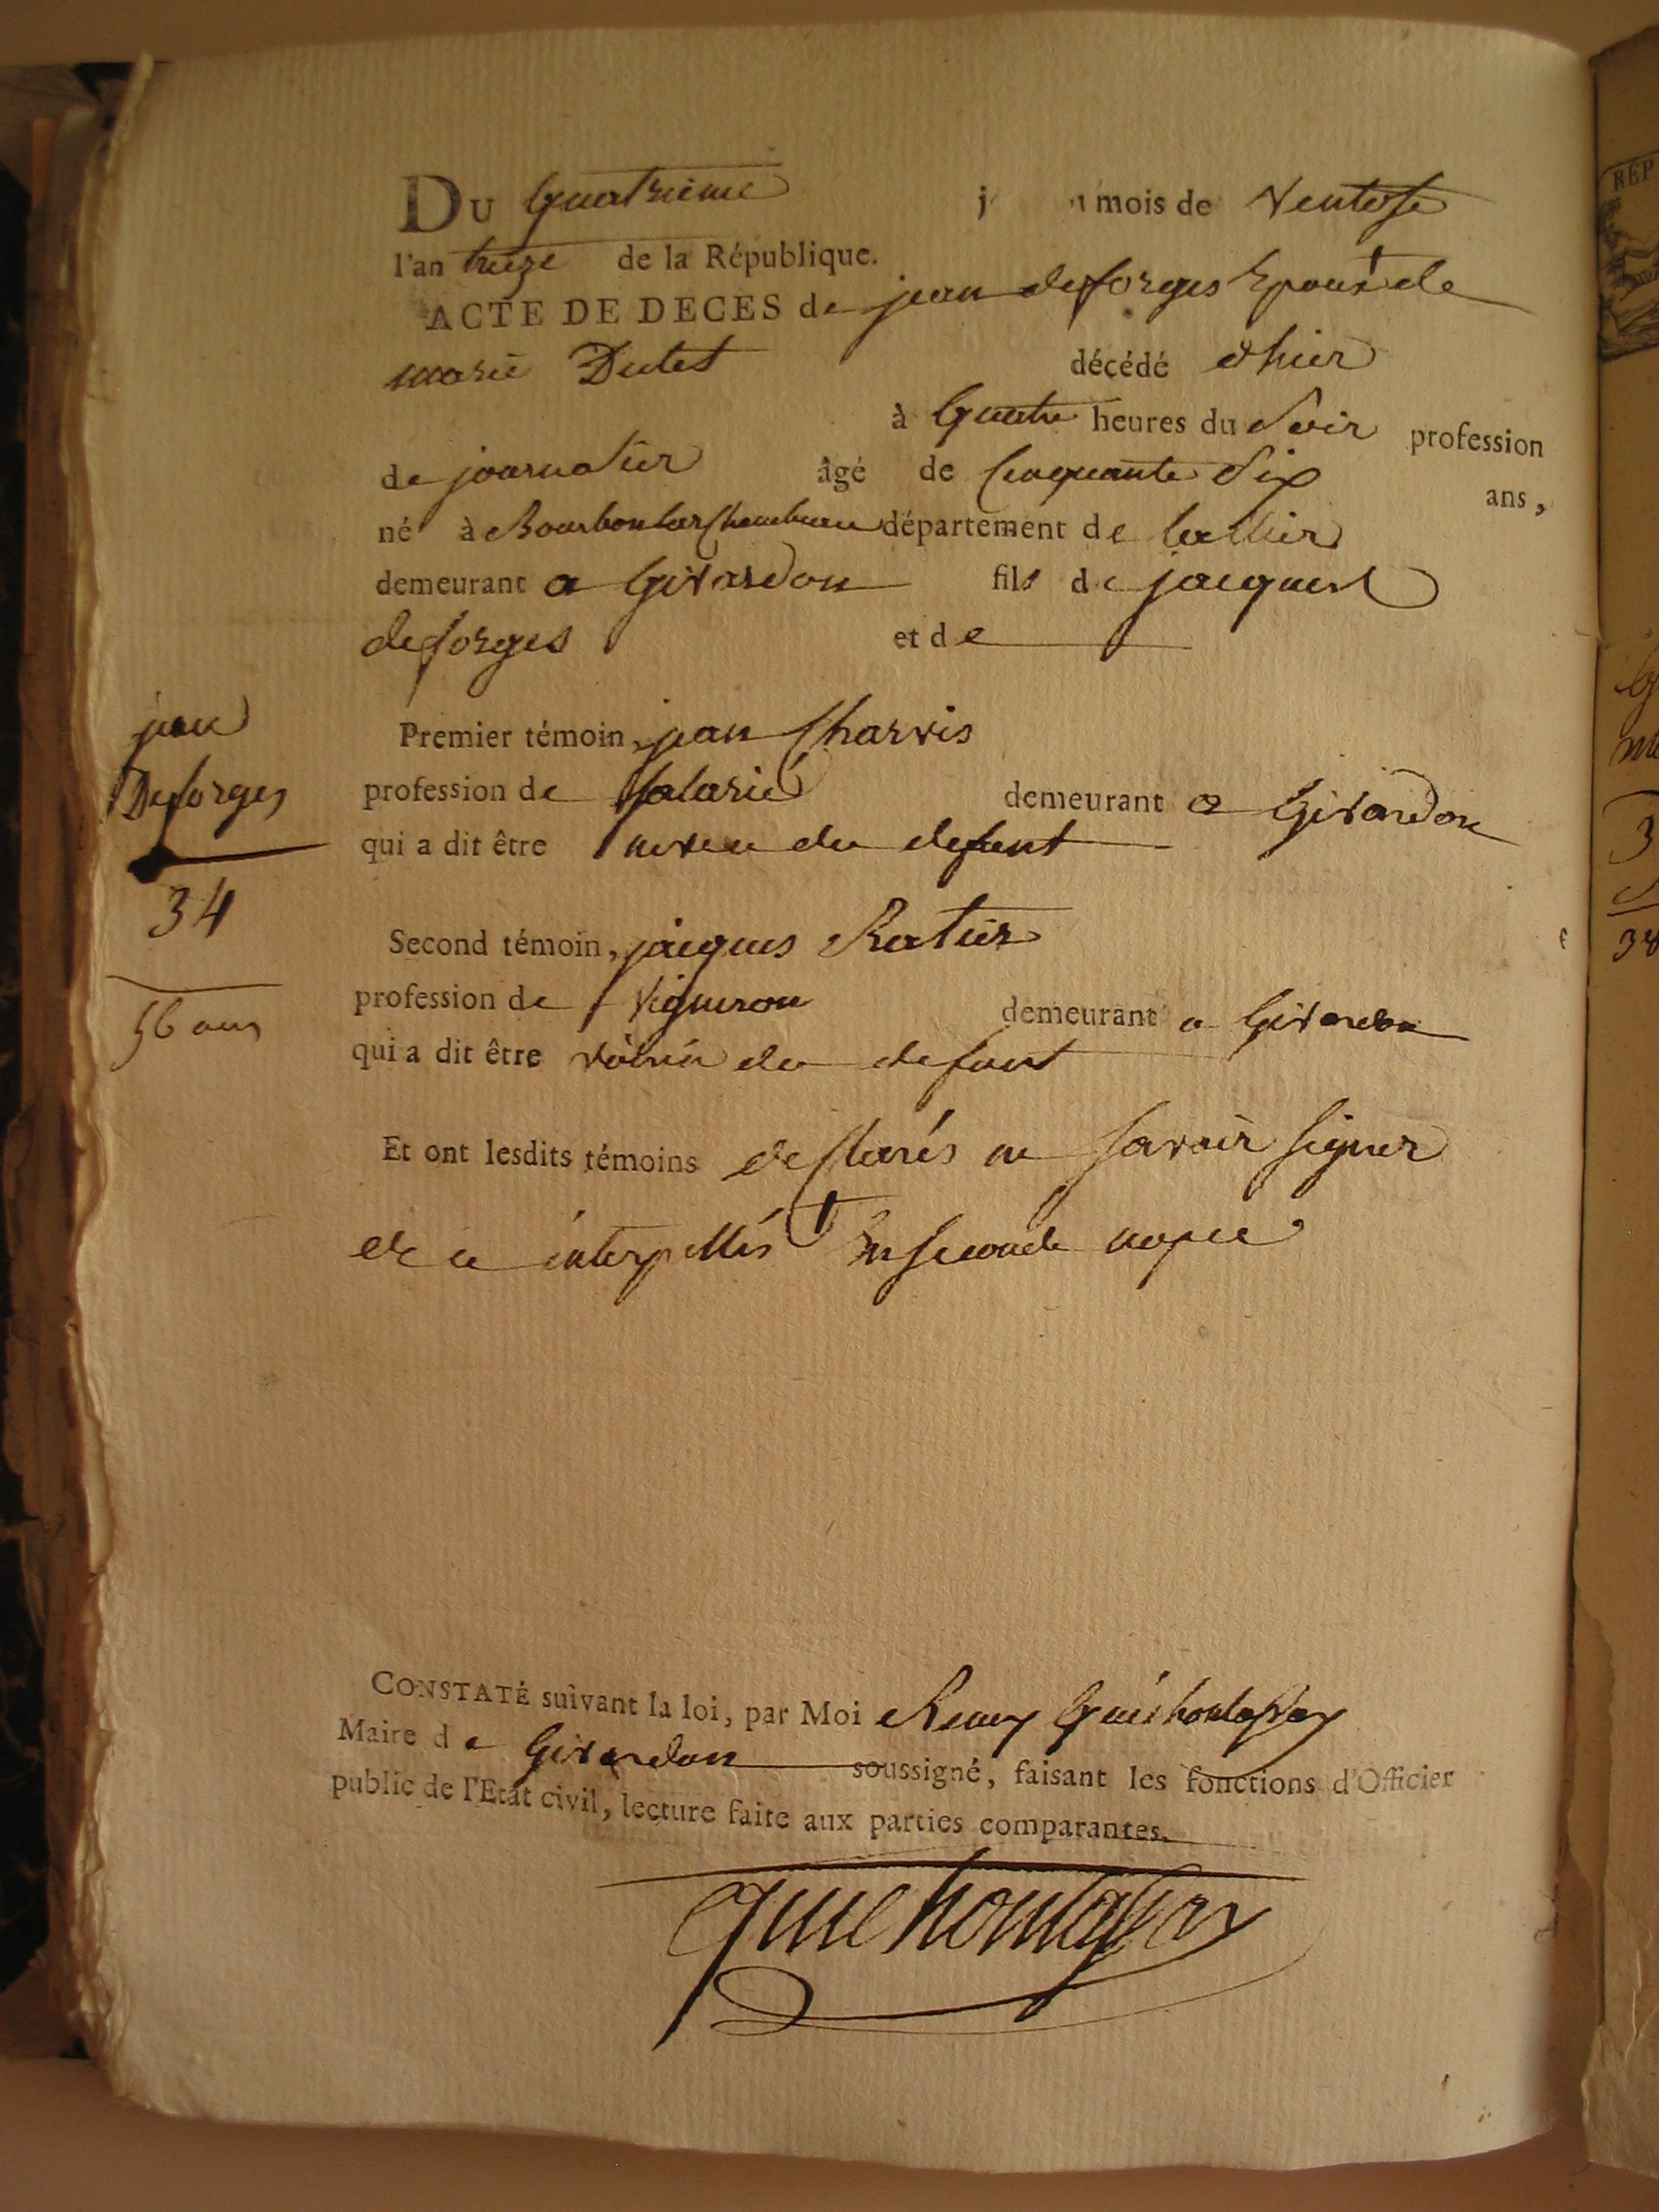 DU Quatrieme j u mois de Ventose
l'an treize de la République.
ACTE DE DECES de jean deforges Epoux † de
marie Dutet décédé d'hier
à Quatre heures du Soir profession
de journalier âgé de Cinquante Six ans,
né à Bourbon larchambau département de lallier
demeurant a Givardon fils de jacques
deforges et de
jean
Deforges
34
56 ans
Premier témoin, jean Charvis
profession de Salarié demeurant a Givardon
qui a dit être neveu du defunt
Second témoin, jacques Ratier
profession de Vigneron demeurant a Givardon
qui a dit être voisin du defunt
Et ont lesdits témoins declarés ne savoir signer
de ce interpellés † En seconde nopce
CONSTATÉ suivant la loi, par Moi Remy
Maire de Givardon soussigné, faisant les fonctions d'Officier
public de l'Etat civil, lecture faite aux parties comparantes.